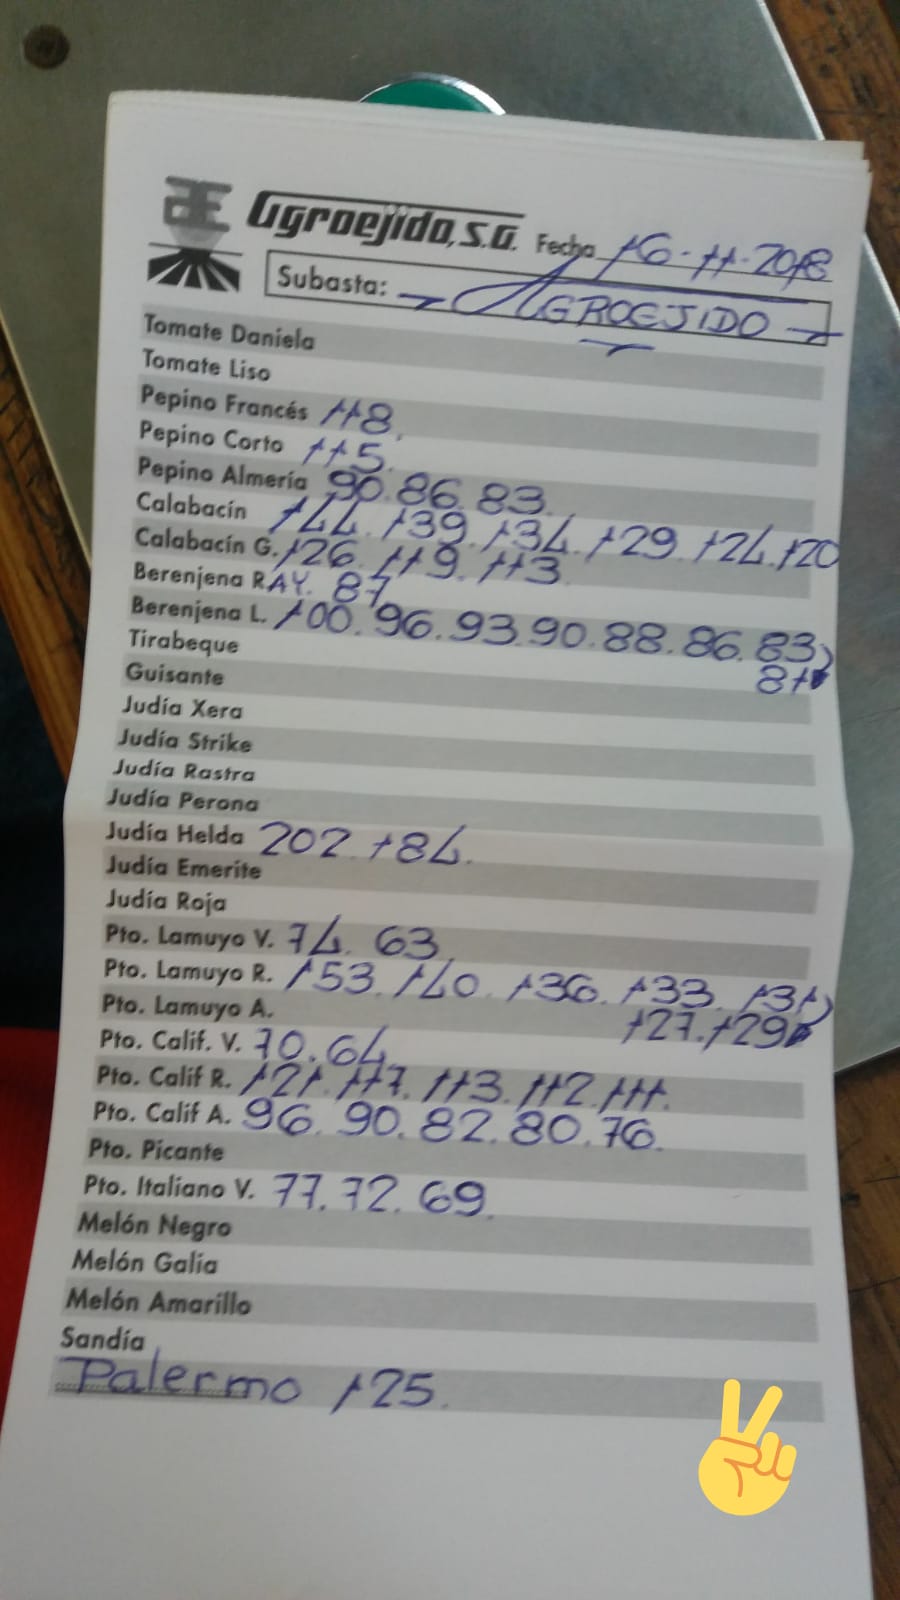 Agroejido, S.A. Fecha 16-11-2018
Subasta: - AGROEJIDO -
Tomate Daniela
Tomate Liso
Pepino Francés 118.
Pepino Corto 115.
Pepino Almería 90. 86. 83.
Calabacín 144. 139. 134. 129. 124. 120
Calabacín G. 126. 119. 113
Berenjena RAY. 87
Berenjena L. 100. 96. 93. 90. 88. 86. 83
81
Tirabeque
Guisante
Judía Xera
Judía Strike
Judía Rastra
Judía Perona
Judía Helda 202. 184.
Judía Emerite
Judía Roja
Pto. Lamuyo V. 74. 63
Pto. Lamuyo R. 153. 140. 136. 133. 131
127. 129
Pto. Lamuyo A.
Pto. Calif. V. 70. 64
Pto. Calif R. 121. 117. 113. 112. 111.
Pto. Calif A. 96. 90. 82. 80. 76.
Pto. Picante
Pto. Italiano V. 77. 72. 69.
Melón Negro
Melón Galia
Melón Amarillo
Sandía
Palermo 125.